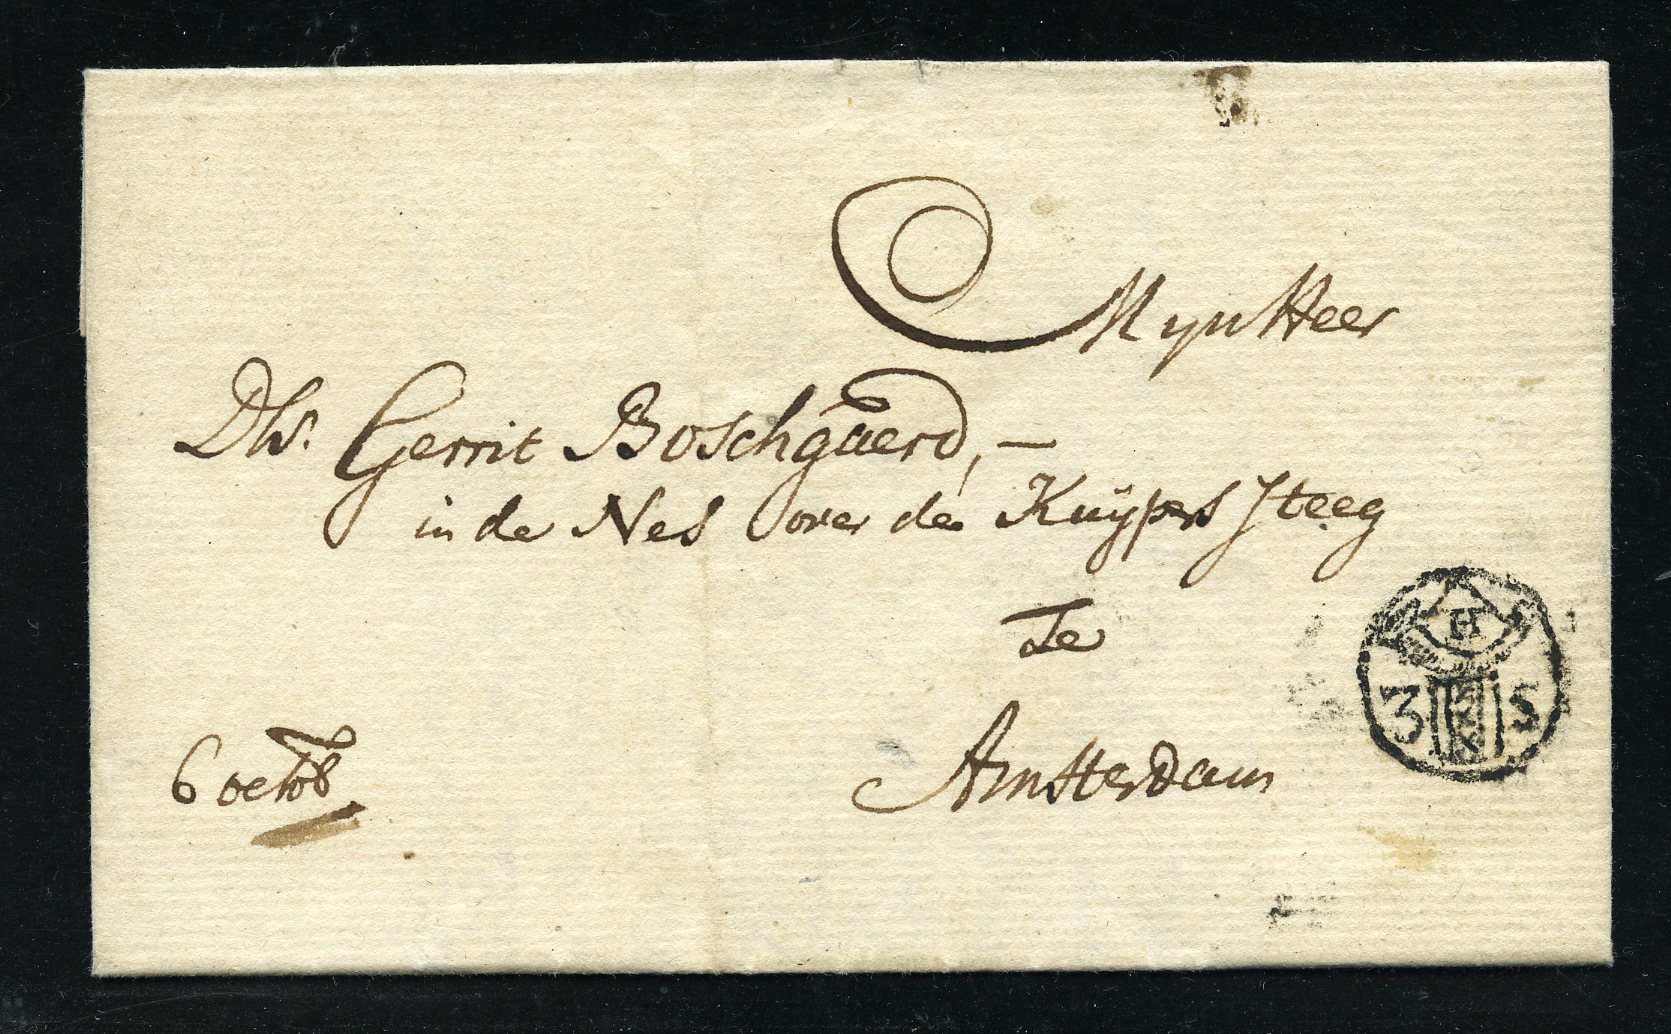 MynHeer
Dhr. Gerrit Boschgaerd,—
in de Nes over de Kuÿpers steeg
Te
Amsterdam
6 octob
H
3 S